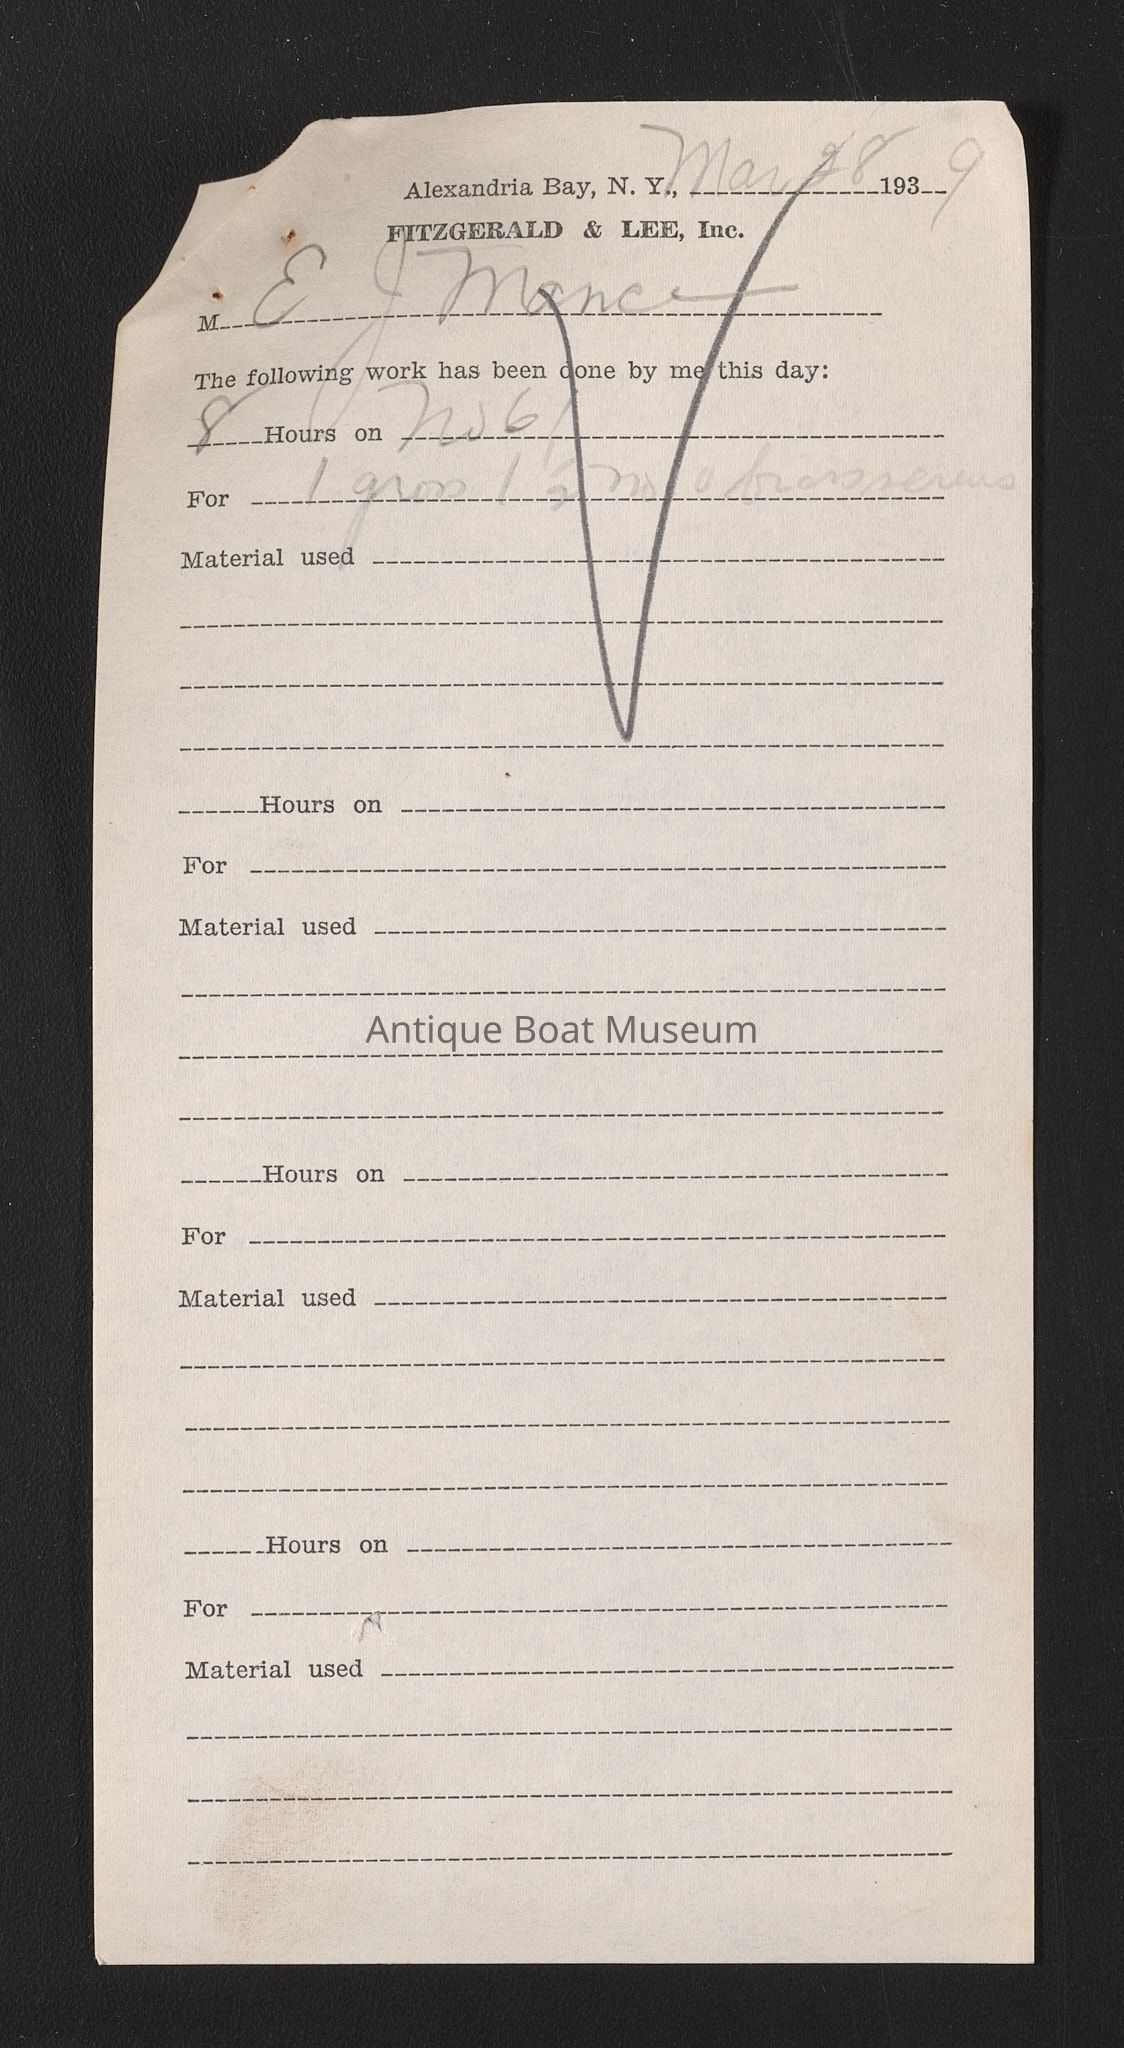 Alexandria Bay, N. Y., Mar 28 1939
FITZGERALD & LEE, Inc.
M E J Mance
The following work has been done by me this day:
8 Hours on No 61
For 1 gross 1 1/2 No 9 brass screws
Material used
Hours on
For
Material used
Antique Boat Museum
Hours on
For
Material used
Hours on
For
Material used